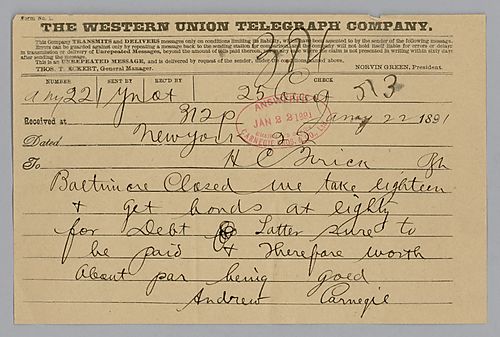 Form No. 1.
THE WESTERN UNION TELEGRAPH COMPANY.
This Company TRANSMITS and DELIVERS messages only on conditions limiting its liability, which have been assented to by the sender of the following message.
Errors can be guarded against only by repeating a message back to the sending station for comparison, and the company will not hold itself liable for errors or delays
in transmission or delivery of Unrepeated Messages, beyond the amount of tolls paid thereon, nor in any case where the claim is not presented in writing within sixty days
after sending the message.
This is an UNREPEATED MESSAGE, and is delivered by request of the sender, under the conditions named above.
THOS. T. ECKERT, General Manager. NORVIN GREEN, President.
NUMBER SENT BY REC'D BY CHECK
221 25 513
Received at 312p Jany 22 1891
ANSWERED
JAN 22 1891
CARNEGIE BROS. & CO., Ltd.
Dated New York 22
To H C Frick Pgh
Baltimore Closed we take eighteen
& get bonds at eighty
for Debt Latter sure to
be paid & Therefore worth
About par being good
Andrew Carnegie